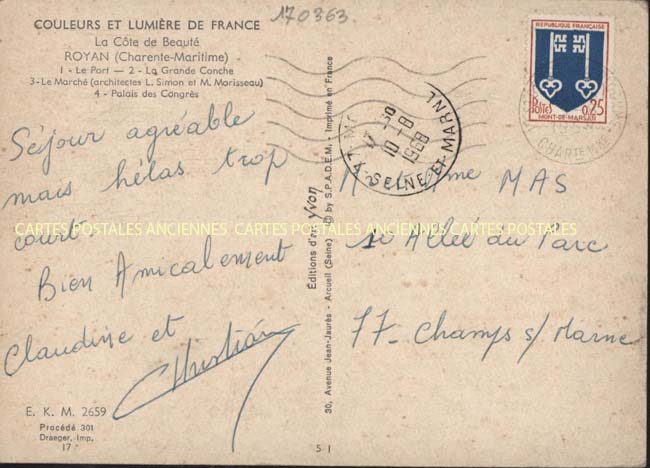 170363.
COULEURS ET LUMIÈRE DE FRANCE
La Côte de Beauté
ROYAN (Charente-Maritime)
1 - Le Port — 2 - La Grande Conche
3 - Le Marché (architectes L. Simon et M. Morisseau)
4 - Palais des Congrès
Séjour agréable
mais hélas trop
court.
Bien Amicalement
Claudine et
Christian
E. K. M. 2659
Procédé 301
Draeger, Imp.
17
Éditions d'art Yvon
30, Avenue Jean-Jaurès - Arcueil (Seine) - © by S.P.A.D.E.M. - Imprimé en France
5 1
17 -30
10 -8
1968
SEINE-ET-MARNE
RÉPUBLIQUE FRANÇAISE
POSTES
0,25
MONT-DE-MARSAN
MAS
Allée du Parc
77- Champs s/ Marne
CARTES POSTALES ANCIENNES CARTES POSTALES ANCIENNES CARTES POSTALES ANCIENNES